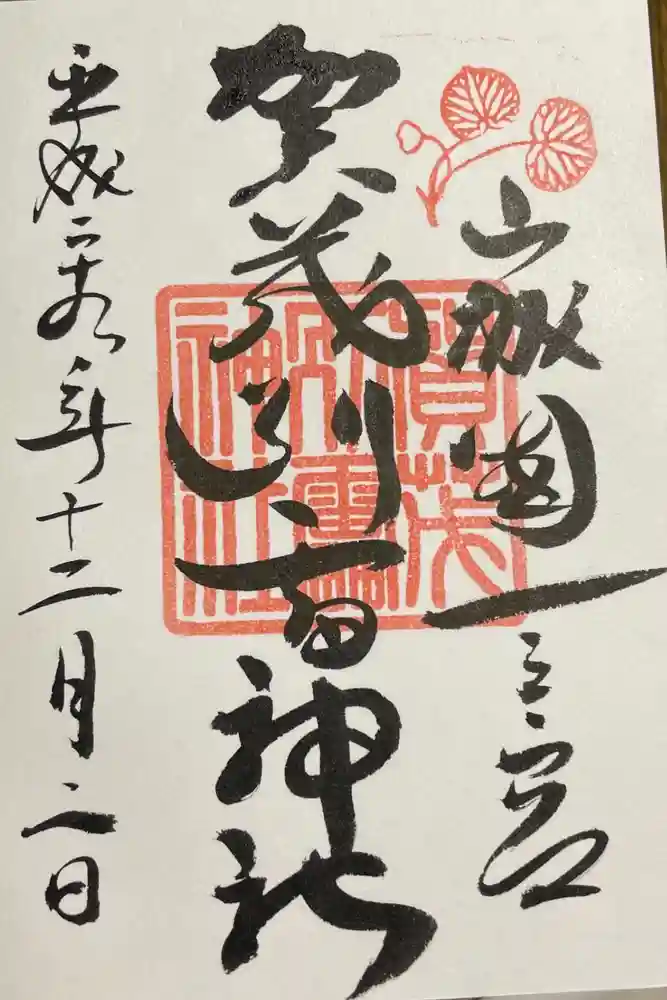 山城國一之宮
賀茂別雷神社
賀茂
別雷
神社
平成二十九年十二月二日